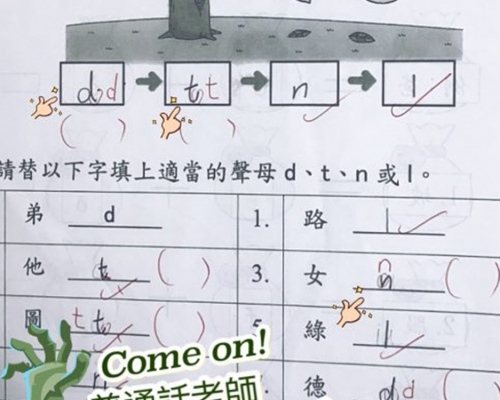 d d → t t → n → l
( ) ( )
請替以下字填上適當的聲母 d、t、n 或 l。
弟 d 1. 路 l
他 t ( ) 3. 女 n n ( )
圖 t t ( ) 5. 綠 l
Come on! 德 d d
普通話老師